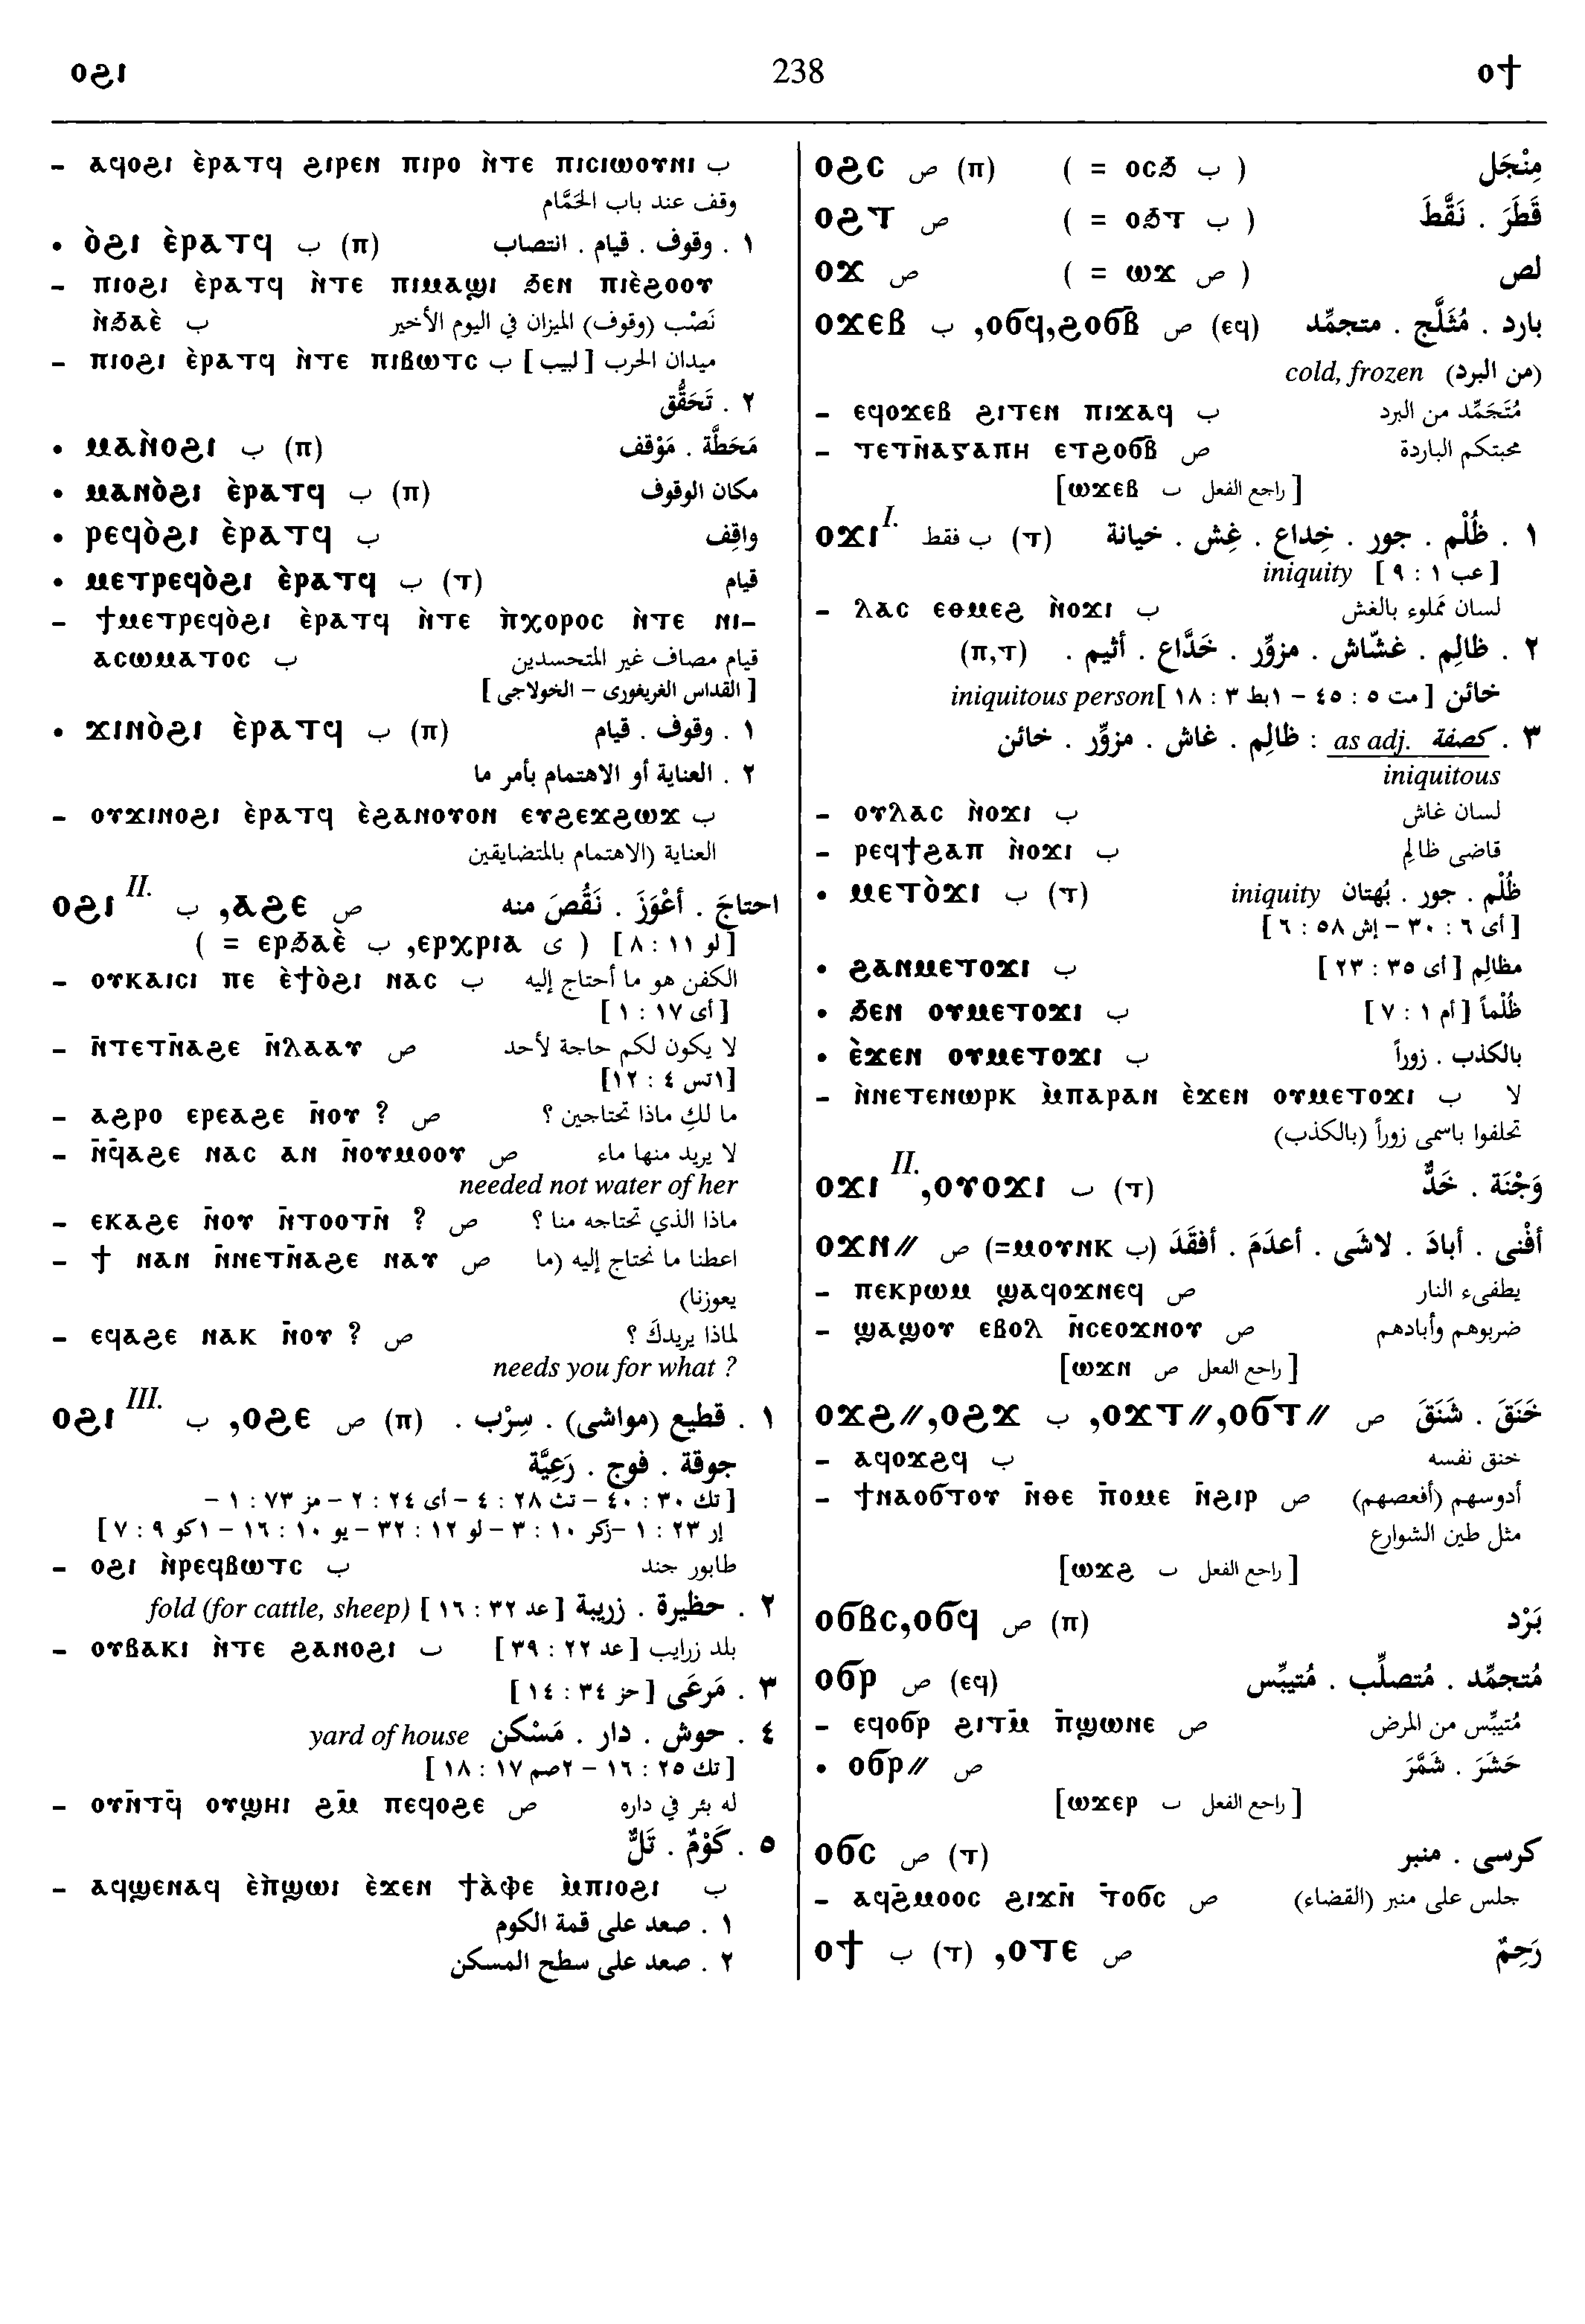 ⲟϩⲓ 238 ⲟϯ
– ⲁϥⲟϩⲓ ⲉ̀ⲣⲁⲧϥ ϩⲓⲣⲉⲛ ⲡⲓⲣⲟ ⲛ̀ⲧⲉ ⲡⲓⲥⲓⲱⲟⲩⲛⲓ ب
وقف عند باب الحَمَّام
• ⲟ̀ϩⲓ ⲉ̀ⲣⲁⲧϥ ب (ⲡ) ١ . وقوف . قيام . انتصاب
– ⲡⲓⲟϩⲓ ⲉ̀ⲣⲁⲧϥ ⲛ̀ⲧⲉ ⲡⲓⲙⲁϣⲓ ϧⲉⲛ ⲡⲓⲉ̀ϩⲟⲟⲩ
ⲛ̀ϧⲁⲉ̀ ب نَصْب (وقوف) الميزان في اليوم الأخير
– ⲡⲓⲟϩⲓ ⲉ̀ⲣⲁⲧϥ ⲛ̀ⲧⲉ ⲡⲓⲃⲱⲧⲥ ب [لبيب] ميدان الحرب
٢ . تَحَقُّق
• ⲙⲁⲛ̀ⲟϩⲓ ب (ⲡ) مَحَطَّة . مَوْقف
• ⲙⲁⲛⲟ̀ϩⲓ ⲉ̀ⲣⲁⲧϥ ب (ⲡ) مكان الوقوف
• ⲣⲉϥⲟ̀ϩⲓ ⲉ̀ⲣⲁⲧϥ ب واقِف
• ⲙⲉⲧⲣⲉϥⲟ̀ϩⲓ ⲉ̀ⲣⲁⲧϥ ب (ⲧ) قيام
– ϯⲙⲉⲧⲣⲉϥⲟ̀ϩⲓ ⲉ̀ⲣⲁⲧϥ ⲛ̀ⲧⲉ ⲡ̀ⲭⲟⲣⲟⲥ ⲛ̀ⲧⲉ ⲛⲓ–
ⲁⲥⲱⲙⲁⲧⲟⲥ ب قيام مصاف غير المتجسدين
[ القداس الغريغورى – الخولاجى ]
• ϫⲓⲛⲟ̀ϩⲓ ⲉ̀ⲣⲁⲧϥ ب (ⲡ) ١ . وقوف . قيام
٢ . العناية أو الاهتمام بأمر ما
– ⲟⲩϫⲓⲛⲟϩⲓ ⲉ̀ⲣⲁⲧϥ ⲉ̀ϩⲁⲛⲟⲩⲟⲛ ⲉⲩϩⲉϫϩⲱϫ ب
العناية (الاهتمام بالمتضايقين
ⲟϩⲓ II. ب ,ⲁϩⲉ ص احتاجَ . أعْوَزَ . نَقُصَ منه
[لو ١١ : ٨] ( ى ⲉⲣⲭⲣⲓⲁ, ب ⲉⲣϧⲁⲉ̀ = )
– ⲟⲩⲕⲁⲓⲥⲓ ⲡⲉ ⲉ̀ϯⲟ̀ϩⲓ ⲛⲁⲥ ب الكفن هو ما أحتاج إليه
[أى ١٧ : ١ ]
– ⲛ̄ⲧⲉⲧⲛ̄ⲁϩⲉ ⲛ̄ⲗⲁⲁⲩ ص لا يكون لكم حاجة لأحد
[١تس ٤ : ١٢]
– ⲁϩⲣⲟ ⲉⲣⲉⲁϩⲉ ⲛ̄ⲟⲩ ? ص ما لكِ ماذا تحتاجين ؟
– ⲛ̄ϥⲁϩⲉ ⲛⲁⲥ ⲁⲛ ⲛ̄ⲟⲩⲙⲟⲟⲩ ص لا يريد منها ماء
needed not water of her
– ⲉⲕⲁϩⲉ ⲛ̄ⲟⲩ ⲛ̄ⲧⲟⲟⲧⲛ̄ ? ص ماذا الذي تحتاجه منا ؟
– ϯ ⲛⲁⲛ ⲛ̄ⲛⲉⲧⲛ̄ⲁϩⲉ ⲛⲁⲩ ص اعطنا ما نحتاج إليه (ما
يعوزنا)
– ⲉϥⲁϩⲉ ⲛⲁⲕ ⲛ̄ⲟⲩ ? ص لماذا يريدكَ ؟
needs you for what ?
ⲟϩⲓ III. ب ,ⲟϩⲉ ص (ⲡ) ١ . قطيع (مواشى) . سِرْب .
جوقة . فوج . رَعِيَّة
[ تك ٣٠ : ٤٠ – تث ٢٨ : ٤ – أى ٢٤ : ٢ – مز ٧٣ : ١ –
إر ٢٣ : ١ –زكر ١٠ : ٣ – لو ١٢ : ٣٢ – يو ١٠ : ١٦ – ١كو ٩ : ٧ ]
– ⲟϩⲓ ⲛ̀ⲣⲉϥⲃⲱⲧⲥ ب طابور جند
٢ . حظيرة . زريبة [ عد ٣٢ : ١٦ ] fold (for cattle, sheep)
– ⲟⲩⲃⲁⲕⲓ ⲛ̀ⲧⲉ ϩⲁⲛⲟϩⲓ ب بلد زرايب [ عد ٢٢ : ٣٩ ]
٣ . مَرعَى [ حز ٣٤ : ١٤ ]
٤ . حوش . دار . مَسْكن yard of house
[ تك ٢٥ : ١٦ – ٢صم ١٧ : ١٨ ]
– ⲟⲩⲛ̄ⲧϥ̄ ⲟⲩϣⲏⲓ ϩⲙ̄ ⲡⲉϥⲟϩⲉ ص له بئر في داره
٥ . كَوْمٌ . تَلٌّ
– ⲁϥϣⲉⲛⲁϥ ⲉ̀ⲡ̀ϣⲱⲓ ⲉ̀ϫⲉⲛ ϯⲁ̀ⲫⲉ ⲙ̀ⲡⲓⲟϩⲓ ب
١ . صعد على قمة الكوم
٢ . صعد على سطح المسكن
ⲟϩⲥ ص (ⲡ) ( = ⲟⲥϧ ب ) مِنْجَل
ⲟϩⲧ ص ( = ⲟϧⲧ ب ) قَطَرَ . نَقَّطَ
ⲟϫ ص ( = ⲱϫ ص ) لص
ⲟϫⲉⲃ ب ,ⲟϭϥ,ϩⲟϭⲃ̄ ص (ⲉϥ) بارد . مُثَلَّج . متجمِّد
(من البرد) cold, frozen
– ⲉϥⲟϫⲉⲃ ϩⲓⲧⲉⲛ ⲡⲓϫⲁϥ ب مُتَجَمِّد من البرد
– ⲧⲉⲧⲛ̄ⲁⲅⲁⲡⲏ ⲉⲧϩⲟϭⲃ̄ ص محبتكم الباردة
[ راجع الفعل ب ⲱϫⲉⲃ]
ⲟϫⲓ I. ب فقط (ⲧ) ١ . ظُلْم . جور . خِداع . غِش . خيانة
[عب ١ : ٩ ] iniquity
– ⲗⲁⲥ ⲉⲑⲙⲉϩ ⲛ̀ⲟϫⲓ ب لسان مملوء بالغش
٢ . ظالِم . غشّاش . مزوِّر . خَدَّاع . أثيم . (ⲡ,ⲧ)
خائن [ مت ٥ : ٤٥ – ١بط ٣ : ١٨ ]iniquitous person
٣ . كصفة as adj. : ظالِم . غاش . مزوِّر . خائن
iniquitous
– ⲟⲩⲗⲁⲥ ⲛ̀ⲟϫⲓ ب لسان غاش
– ⲣⲉϥϯϩⲁⲡ ⲛ̀ⲟϫⲓ ب قاضى ظالِم
• ⲙⲉⲧⲟ̀ϫⲓ ب (ⲧ) ظُلْم . جور . بُهتان iniquity
[أى ٦ : ٣٠ – إش ٥٨ : ٦ ]
• ϩⲁⲛⲙⲉⲧⲟϫⲓ ب مظالِم [ أى ٣٥ : ٢٣ ]
• ϧⲉⲛ ⲟⲩⲙⲉⲧⲟϫⲓ ب ظُلْماً [ أم ١ : ٧ ]
• ⲉ̀ϫⲉⲛ ⲟⲩⲙⲉⲧⲟϫⲓ ب بالكذب . زوراً
– ⲛ̀ⲛⲉⲧⲉⲛⲱⲣⲕ ⲙ̀ⲡⲁⲣⲁⲛ ⲉ̀ϫⲉⲛ ⲟⲩⲙⲉⲧⲟϫⲓ ب لا
تحلفوا باسمى زوراً (بالكذب)
ⲟϫⲓ II. ,ⲟⲩⲟϫⲓ ب (ⲧ) وَجْنَة . خَدٌّ
ⲟϫⲛ// ص (=ⲙⲟⲩⲛⲕ ب) أفْنى . أبادَ . لاشَى . أعدَمَ . أفقَدَ
– ⲡⲉⲕⲣⲱⲙ ϣⲁϥⲟϫⲛⲉϥ ص يطفىء النار
– ϣⲁϣⲟⲩ ⲉⲃⲟⲗ ⲛ̄ⲥⲉⲟϫⲛⲟⲩ ص ضربوهم وأبادهم
[ راجع الفعل ص ⲱϫⲛ]
ⲟϫϩ//,ⲟϩϫ ب ,ⲟϫⲧ//,ⲟϭⲧ// ص خَنَقَ . شَنَقَ
– ⲁϥⲟϫϩϥ ب خنق نفسه
– ϯⲛⲁⲟϭⲧⲟⲩ ⲛ̄ⲑⲉ ⲡ̄ⲟⲙⲉ ⲛ̄ϩⲓⲣ ص أدوسهم (أفعصهم)
مثل طين الشوارع
[ راجع الفعل ب ⲱϫϩ]
ⲟϭⲃⲥ,ⲟϭϥ ص (ⲡ) بَرْد
ⲟϭⲣ ص (ⲉϥ) مُتجمِّد . مُتصلِّب . مُتيبِّس
– ⲉϥⲟϭⲣ ϩⲓⲧⲙ̄ ⲡ̄ϣⲱⲛⲉ ص مُتيبِّس من المرض
• ⲟϭⲣ// ص حَشَرَ . شَمَّرَ
[ راجع الفعل ب ⲱϫⲉⲣ]
ⲟϭⲥ ص (ⲧ) كرسى . منبر
– ⲁϥϩ̄ⲙⲟⲟⲥ ϩⲓϫⲛ̄ ⲧ̄ⲟϭⲥ ص جلس على منبر (القضاء)
ⲟϯ ب (ⲧ) ,ⲟⲧⲉ ص رَحِمٌ